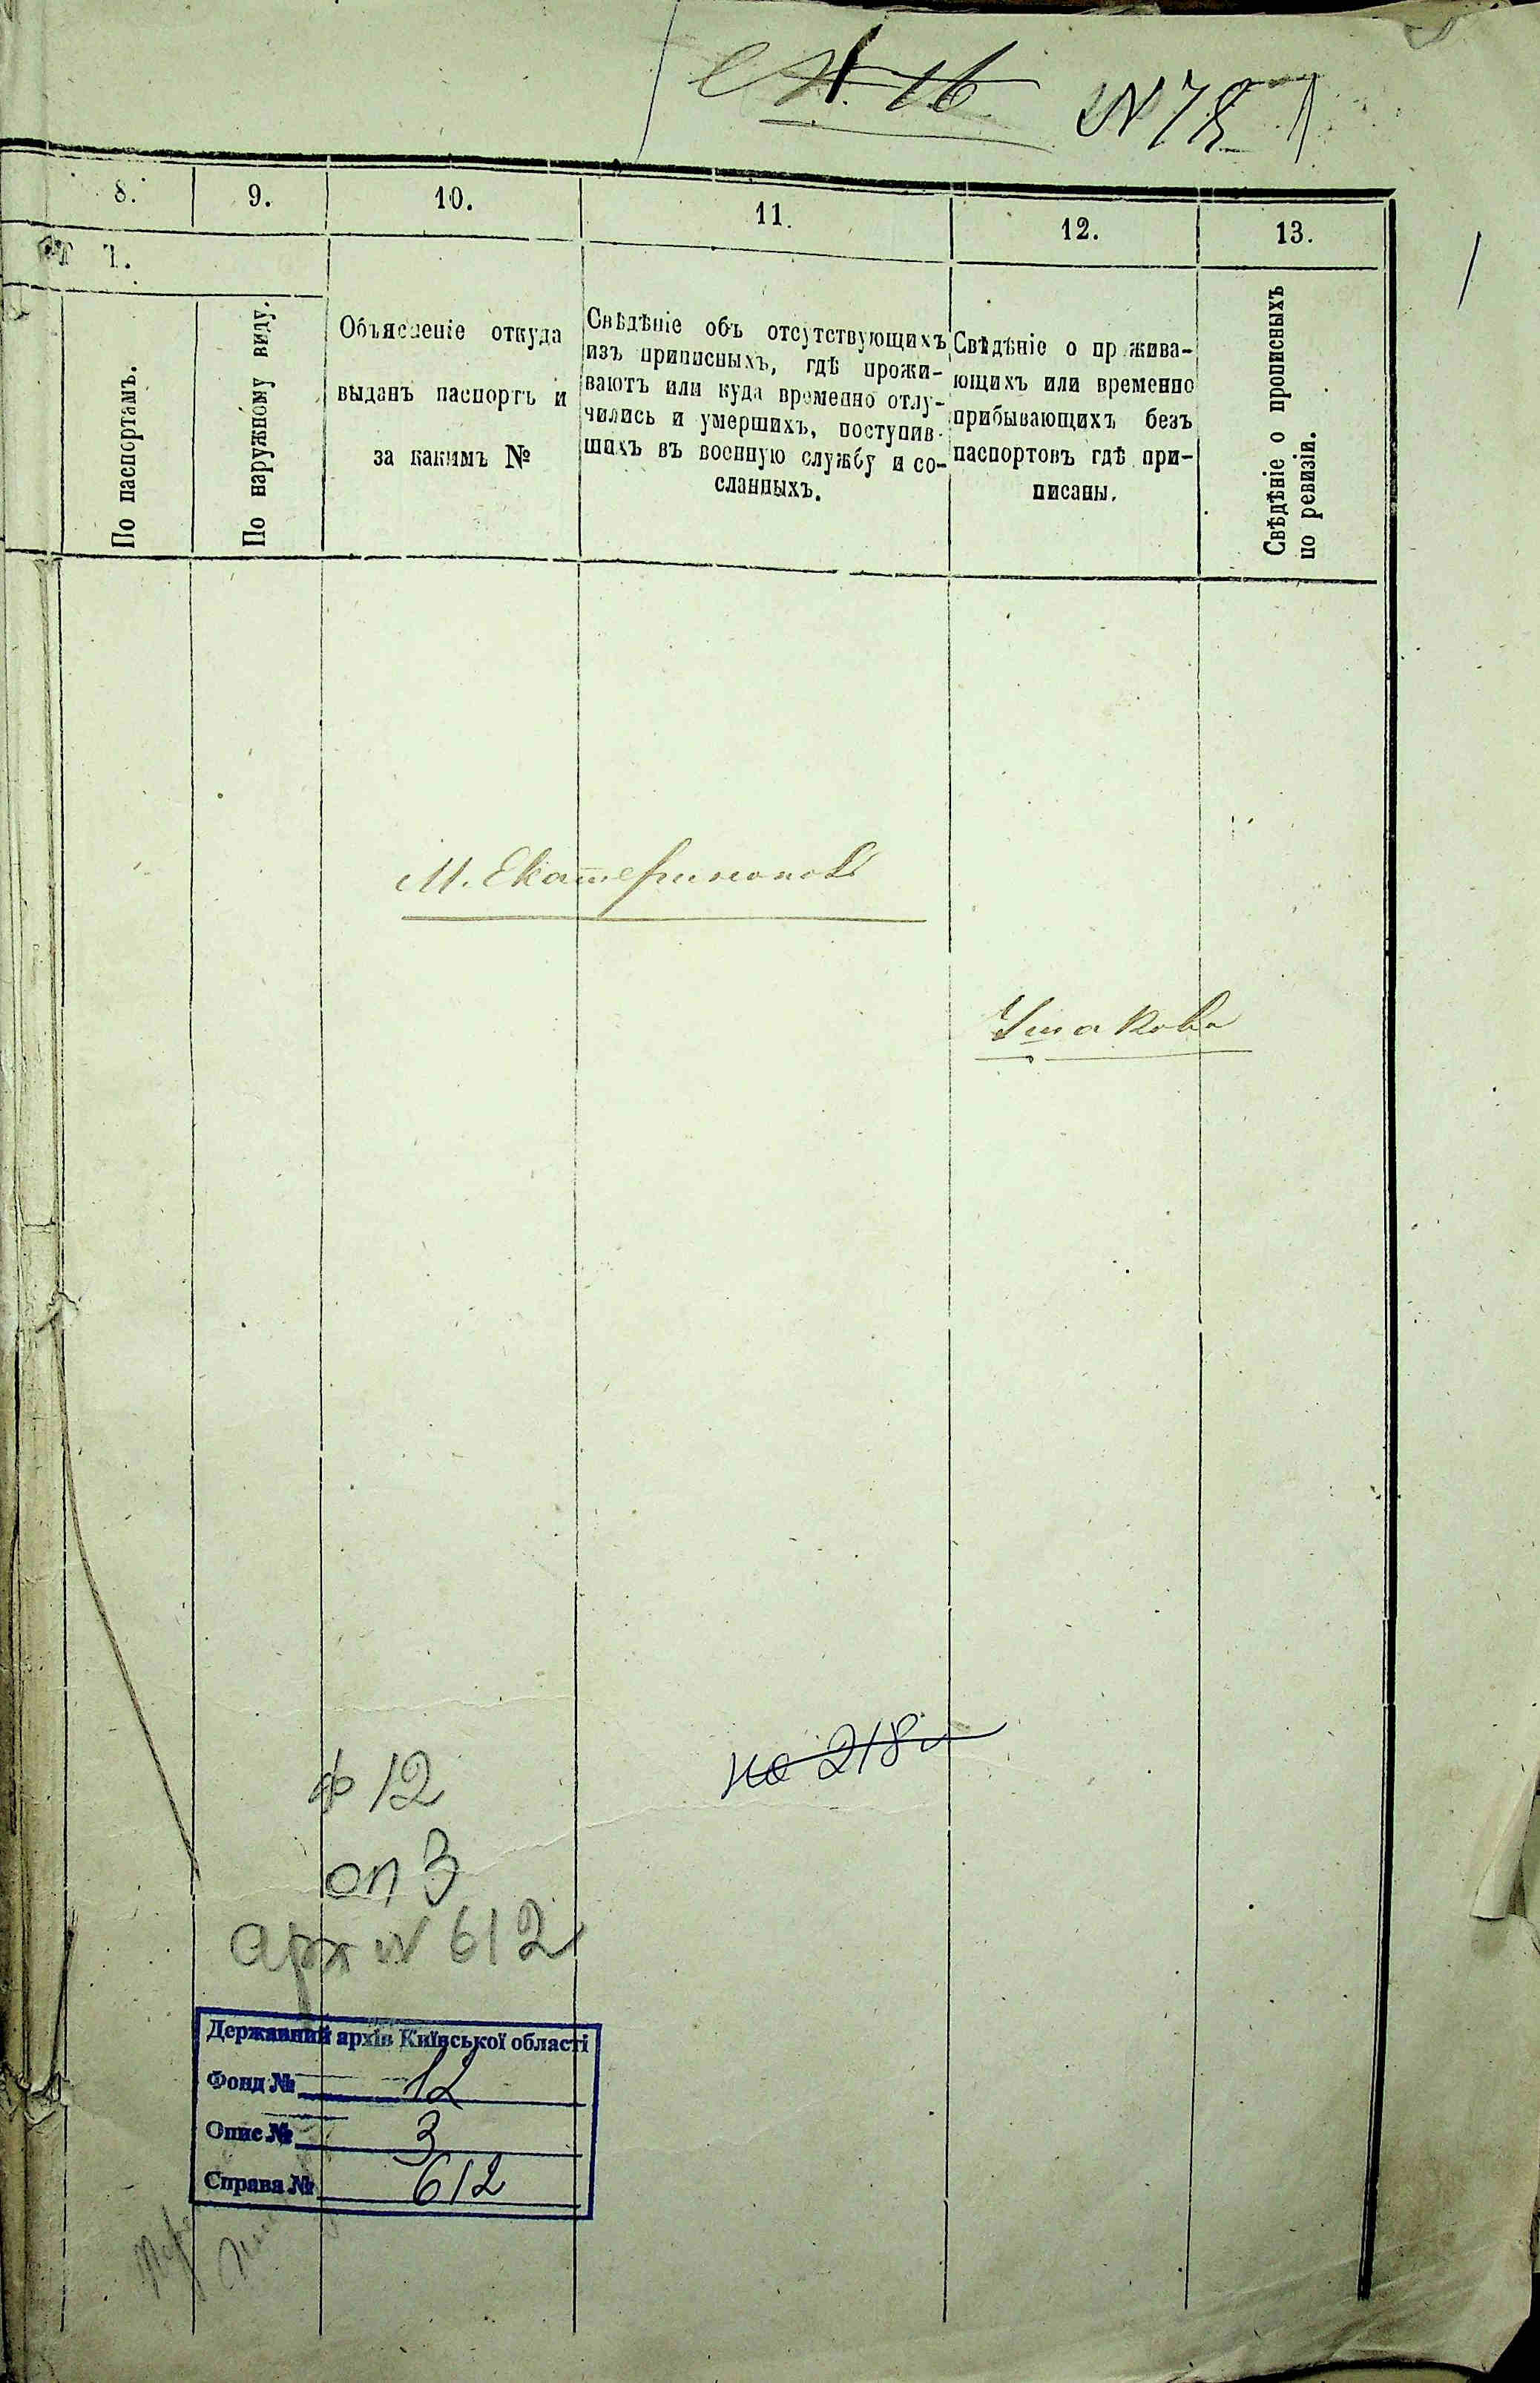 № 16 № 78
8. 9. 10. 11. 12. 13.
1
Т Ъ.
По паспортамъ.
По наружному виду.
Объясненіе откуда
выданъ паспортъ и
за какимъ №
Свѣдѣніе объ отсутствующихъ
изъ приписныхъ, гдѣ прожи-
ваютъ или куда временно отлу-
чились и умершихъ, поступив-
шихъ въ военную службу и со-
сланныхъ.
Свѣдѣніе о пр жива-
ющихъ или временно
прибывающихъ безъ
паспортовъ гдѣ при-
писаны.
Свѣдѣніе о прописныхъ
по ревизіи.
М. Екатеринополь
Ушакова
на 218
ф 12
оп 3
арх № 612
Державний архів Київської області
Фонд № 12
Опис № 3
Справа № 612